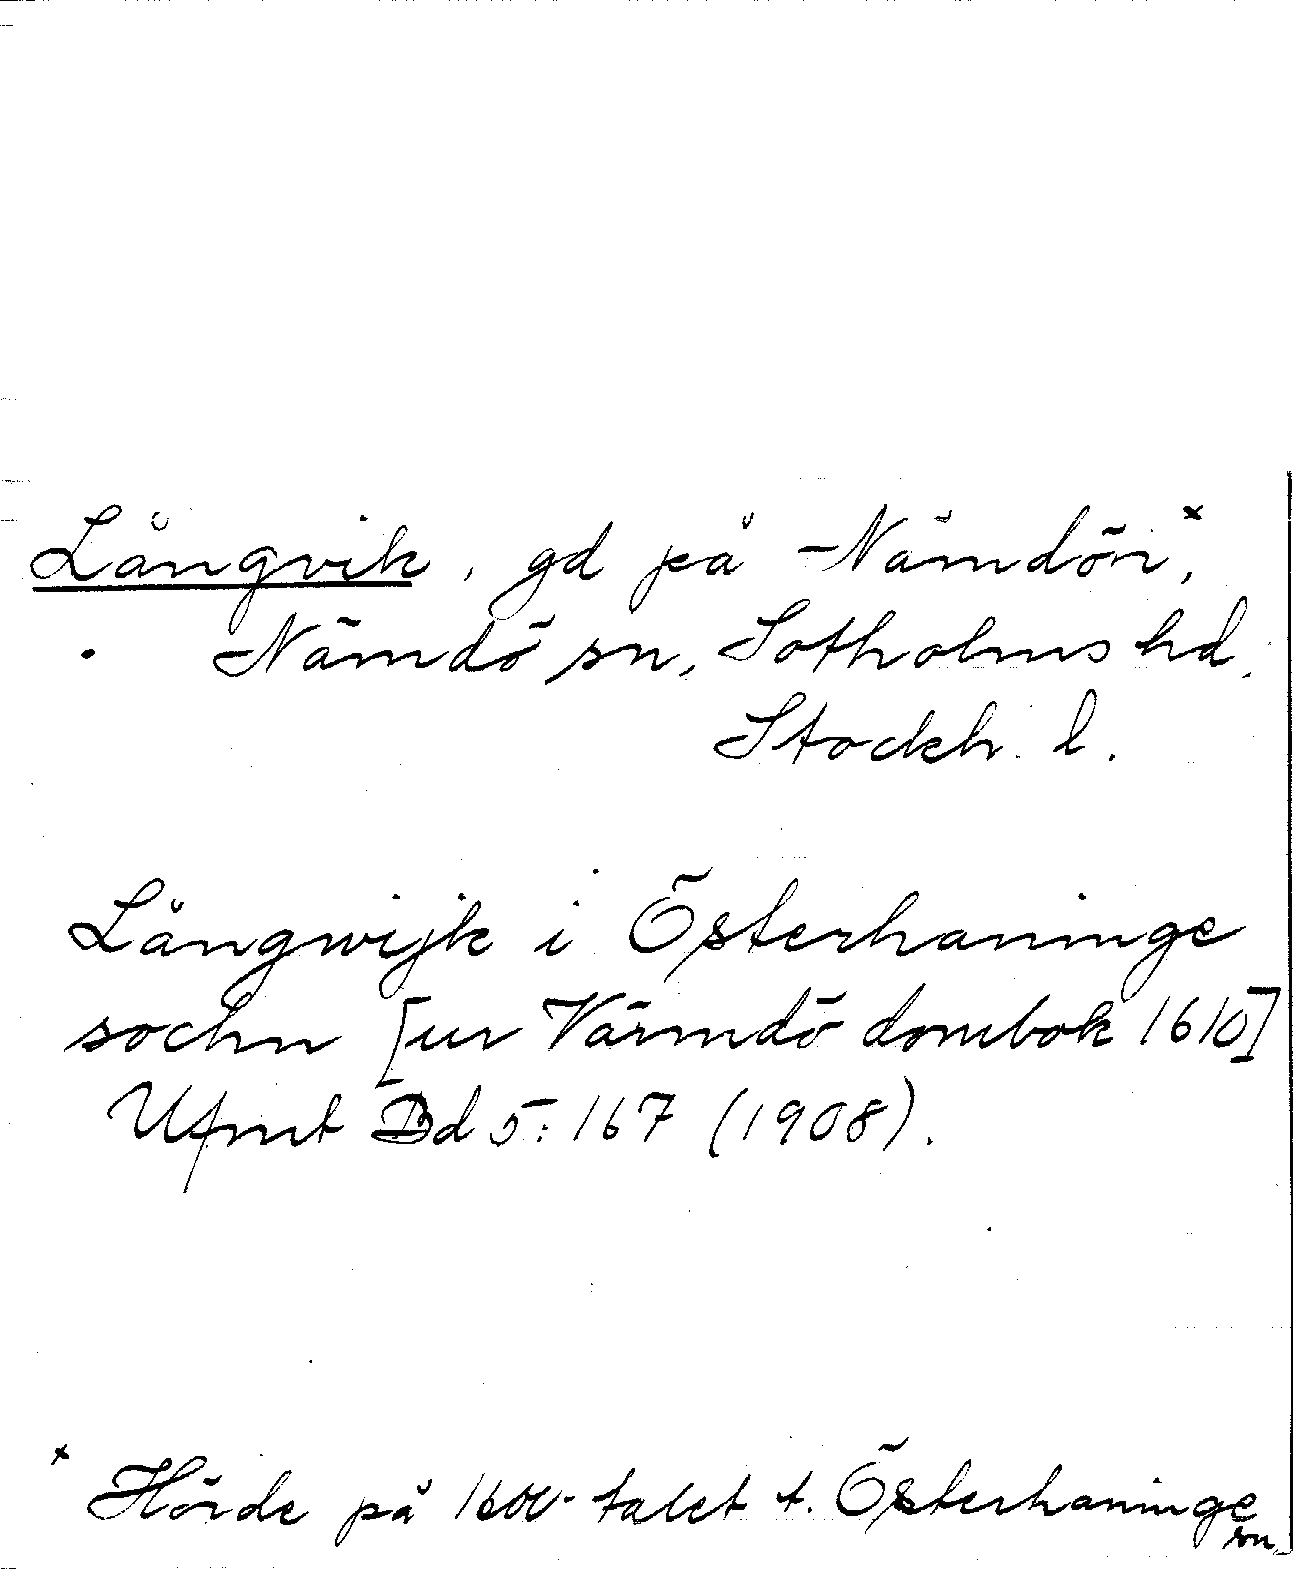 Långvik, gd på Nämdön,ˣ
Nämdö sn, Sotholms hd,
Stockh. l.
Långwijk i Österhaninge
sochn [ur Värmdö dombok 1610]
Ufmt Bd 5: 167 (1908).
ˣ Hörde på 1600-talet t. Österhaninge
sn.